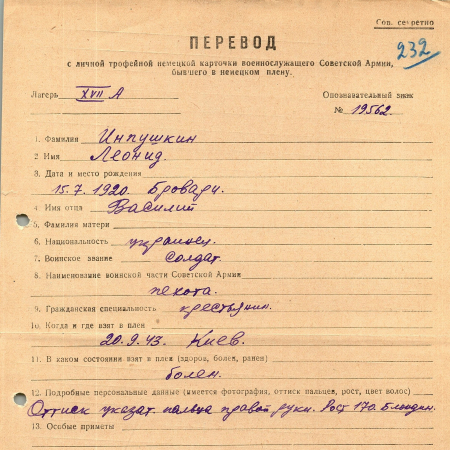 Сов. секретно
ПЕРЕВОД
232
с личной трофейной немецкой карточки военнослужащего Советской Армии,
бывшего в немецком плену.
Лагерь XVII А
Опознавательный знак
№ 19562.
1. Фамилия Инпушкин
2 Имя Леонид.
3. Дата и место рождения
15.7.1920. Бровари.
4. Имя отца Василий
5. Фамилия матери
6. Национальность украинец.
7. Воинское звание солдат.
8. Наименование воинской части Советской Армии
пехота.
9. Гражданская специальность крестьянин.
10. Когда и где взят в плен
20.9.43. Киев.
11. В каком состоянии взят в плен (здоров, болен, ранен)
болен.
12. Подробные персональные данные (имеется фотография, оттиск пальцев, рост, цвет волос)
Оттиск указат. пальца правой руки. Рост 170. Блондин.
13. Особые приметы